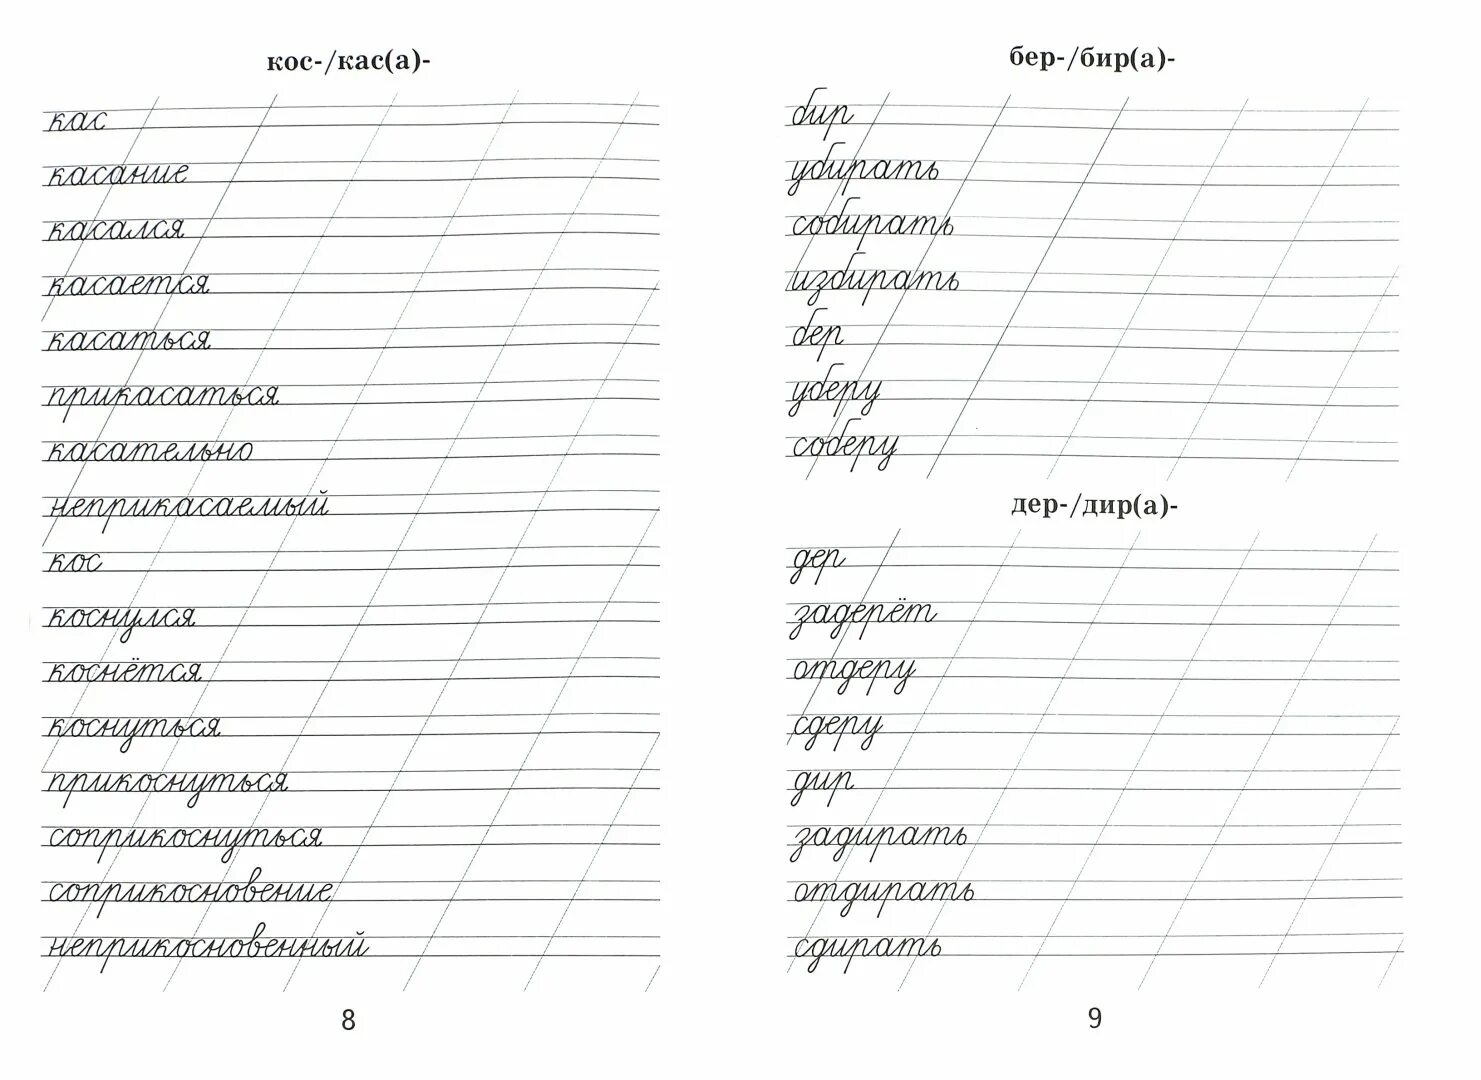 кос-/кас(а)-
кас
касание
касался
касается
касаться
прикасаться
касательно
неприкасаемый
кос
коснулся
коснётся
коснуться
прикоснуться
соприкоснуться
соприкосновение
неприкосновенный
8
бер-/бир(а)-
бир
убирать
собирать
избирать
бер
уберу
соберу
дер-/дир(а)-
дер
задерёт
отдеру
сдеру
дир
задирать
отдирать
сдирать
9